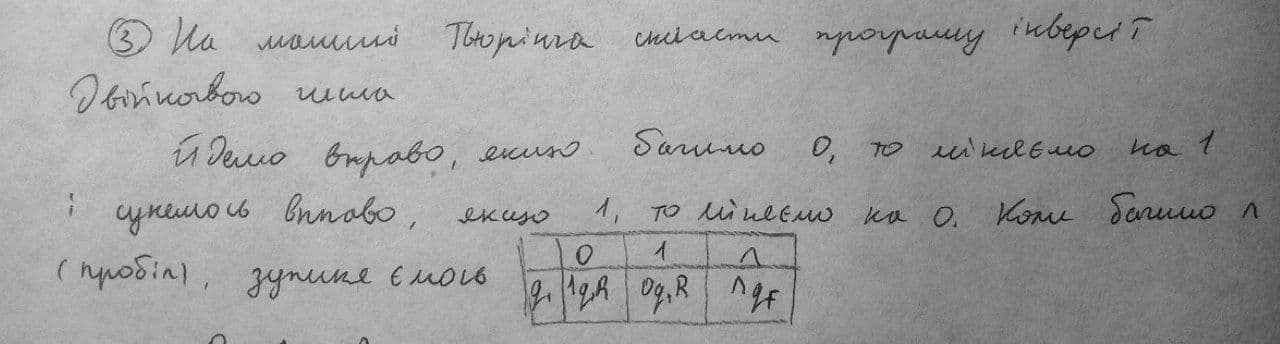 ③ На машині Тьюрінга скласти програму інверсії
двійкового числа
Йдемо вправо, якщо бачимо 0, то міняємо на 1
і сунемось вправо, якщо 1, то міняємо на 0. Коли бачимо ᴧ
(пробіл), зупиняємось
0 1 ᴧ
q₁ 1q₁R 0q₁R ᴧ qF